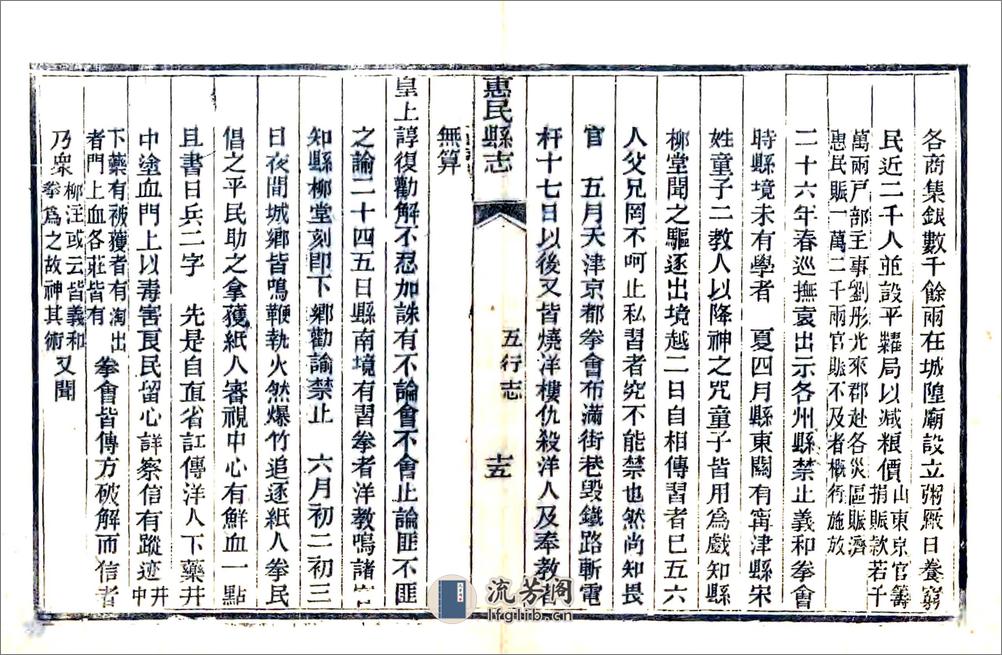 各商集銀數千餘兩在城隍廟設立粥厰日養窮
民近二千人並設平糶局以减粮價山東京官籌捐賑款若干
萬兩戸部主事劉彤光來郡赴各災區賑濟惠民賑一萬二千兩官賑不及者概行施放
二十六年春巡撫袁出示各州縣禁止義和拳會
時縣境未有學者　夏四月縣東關有甯津縣宋
姓童子二敎人以降神之咒童子皆用爲戲知縣
柳堂聞之驅逐出境越二日自相傳習者已五六
人父兄罔不呵止私習者究不能禁也然尚知畏
官　五月天津京都拳會布滿街巷毀鐵路斬電
杆十七日以後又皆燒洋樓仇殺洋人及奉敎者
無算
惠民縣志
五行志
十五
皇上諄復勸解不忍加誅有不論會不會止論匪不匪
之諭二十四五日縣南境有習拳者洋敎鳴諸官
知縣柳堂刻即下鄉勸諭禁止　六月初二初三
日夜間城鄉皆鳴鞭執火然爆竹追逐紙人拳民
倡之平民助之拿獲紙人審視中心有鮮血一點
且書日兵二字　先是自直省訌傳洋人下藥井
中塗血門上以毒害良民留心詳察信有蹤迹井中
下藥有被獲者有淘出者門上血各莊皆有拳會皆傳方破解而信者
乃衆柳汪或云皆義和拳爲之故神其術又聞
流芳閣
lfglib.cn